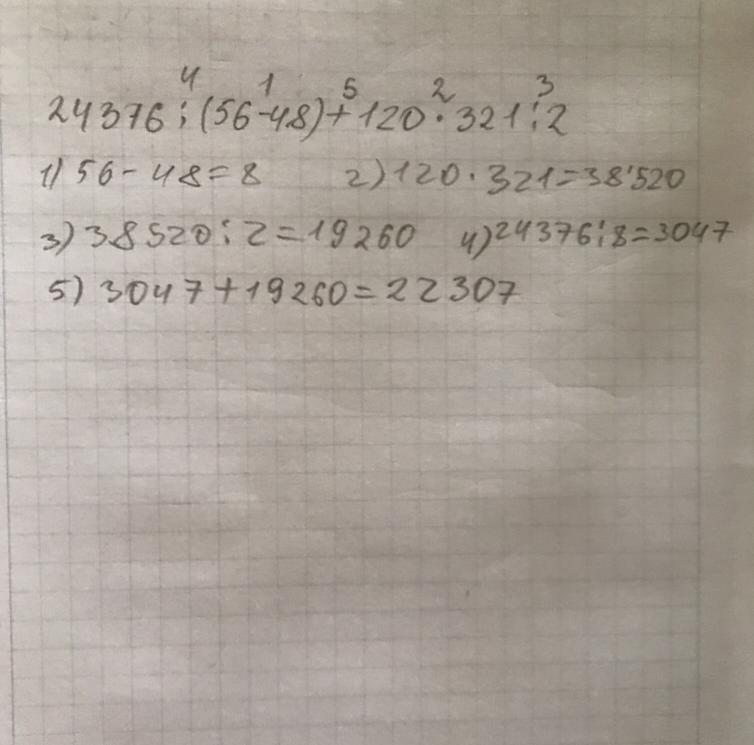 4 1 5 2 3
24376:(56-48)+120·321:2
1) 56-48=8 2) 120·321=38'520
3) 38520:2=19260 4) 24376:8=3047
5) 3047+19260=22307